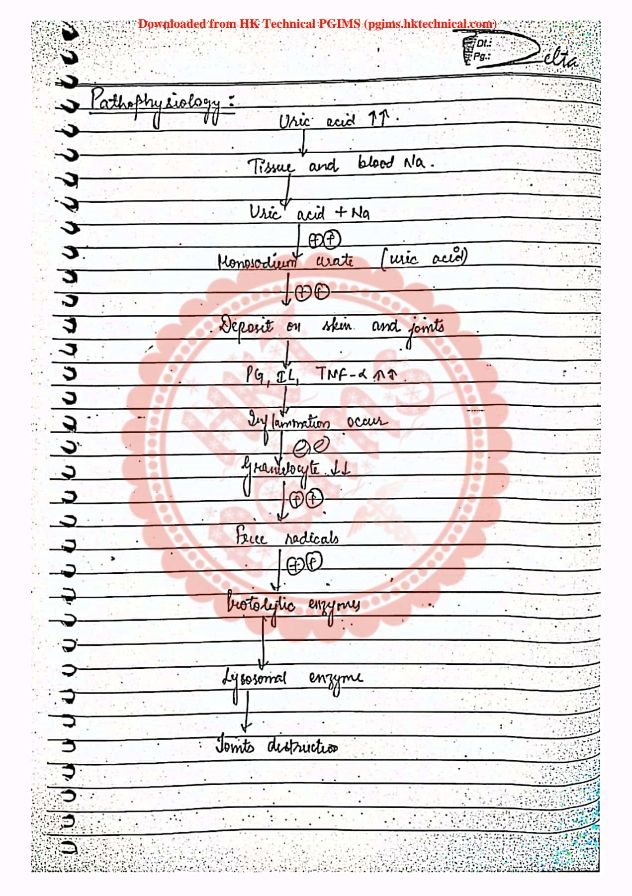 Downloaded from HK Technical PGIMS (pgims.hktechnical.com)
Dt.:
Pg.:
Delta
Pathophysiology :
Uric acid ↑↑.
↓
Tissue and blood Na.
↓
Uric acid + Na
↓ ⊕⊕
Monosodium urate (uric acid)
↓ ⊕⊕
Deposit on skin and joints
↓
PG, IL, TNF-α ↑↑
↓
Inflammation occur
↓ ⊖⊖
Granulocyte ↓↓
↓ ⊕⊕
Free redicals
↓ ⊕⊕
Protolytic enzymes
↓
Lysosomal enzyme
↓
Joints destruction